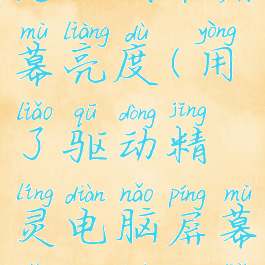 mù liàng dù yòng
幕亮度(用
liǎo qū dòng jīng
了驱动精
líng diàn nǎo píng mù
灵电脑屏幕